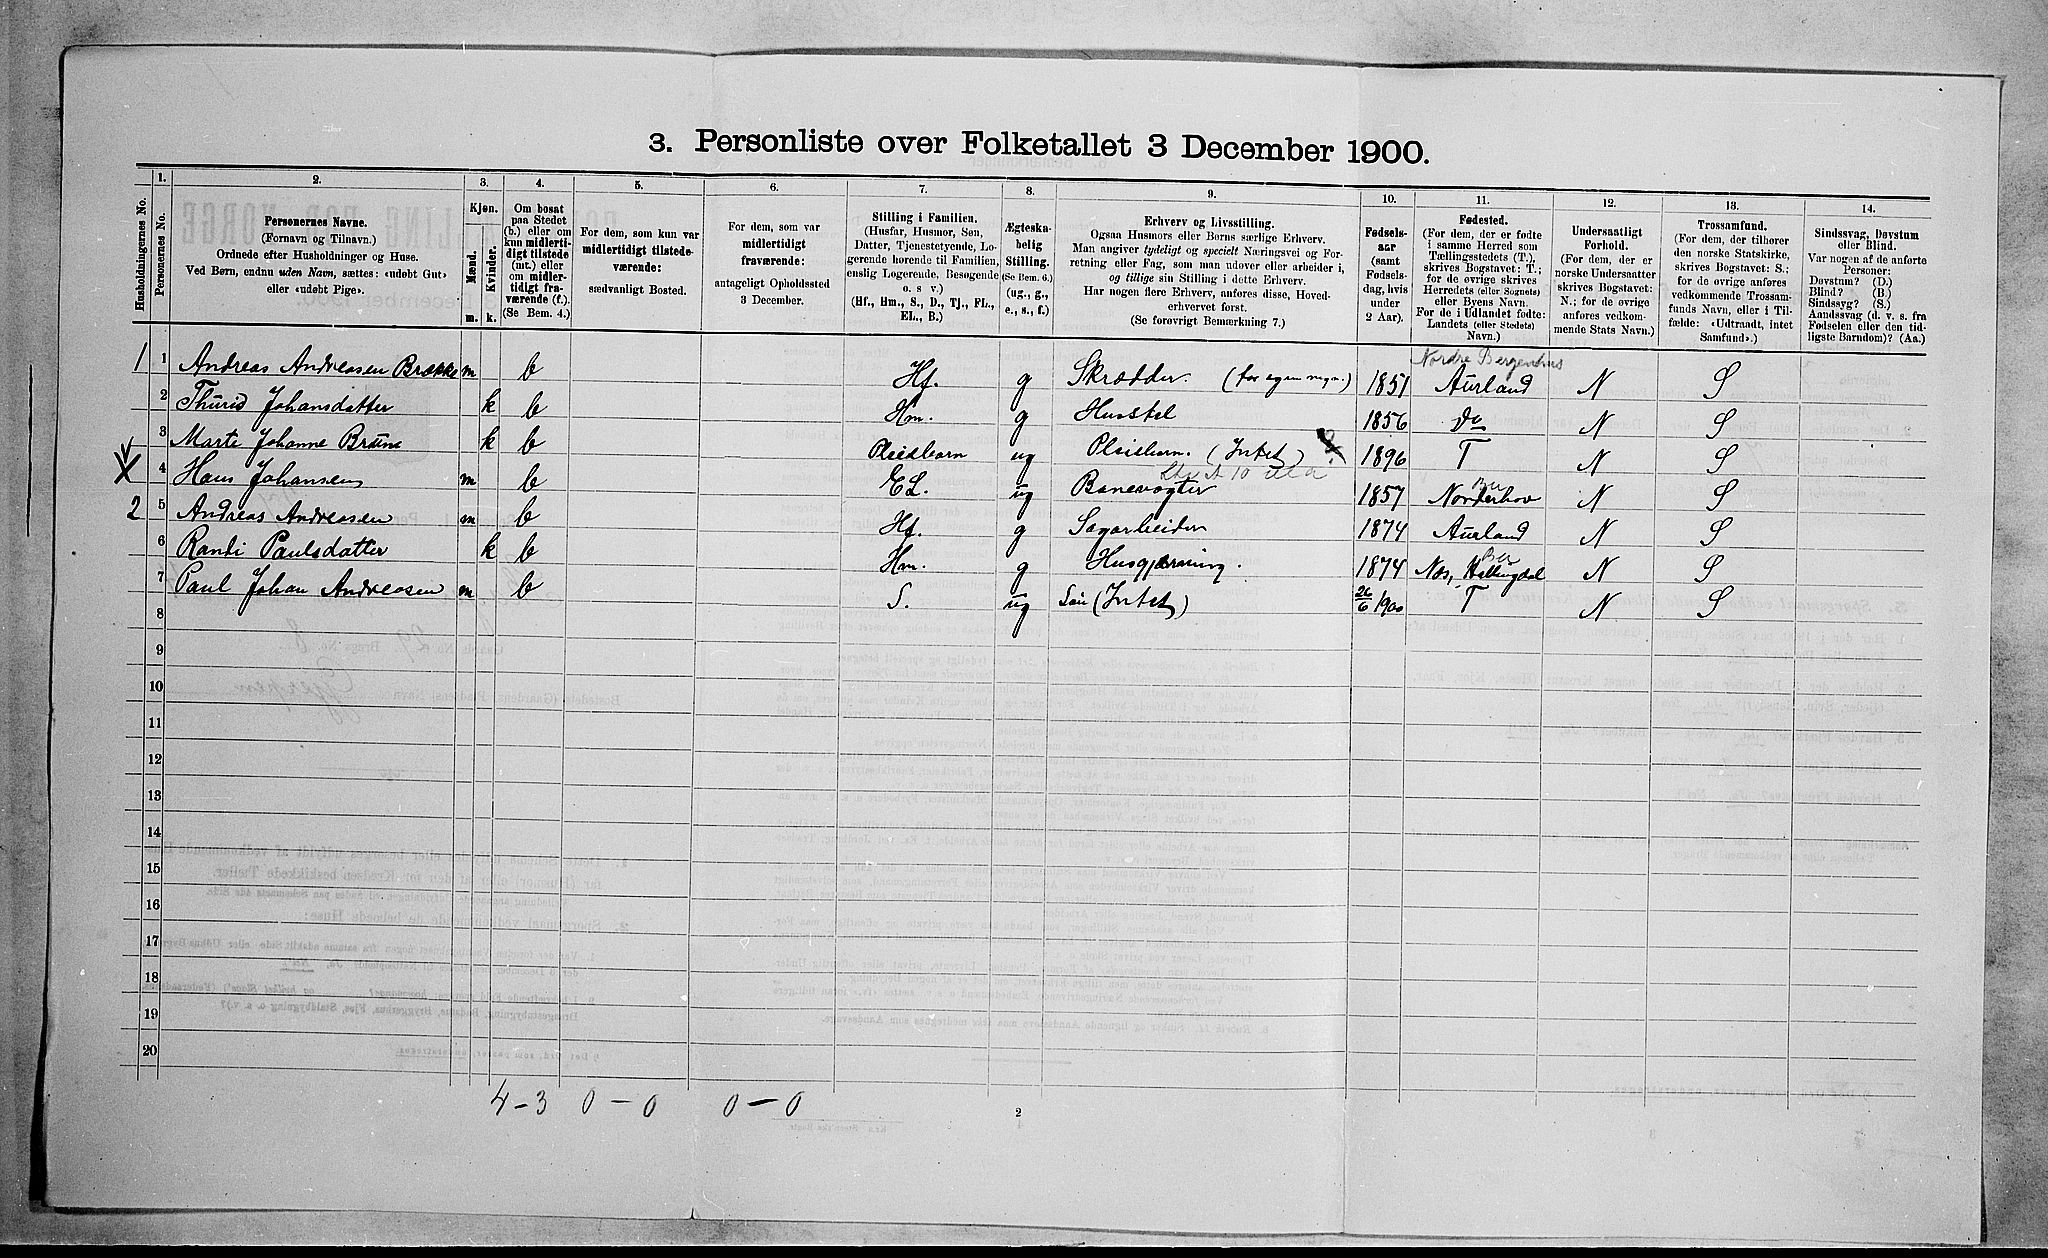 3. Personliste over Folketallet 3 December 1900.
Husholdningernes No.
1.
Personernes No.
2.
Personernes Navne.
(Fornavn og Tilnavn.)
Ordnede efter Husholdninger og Huse.
Ved Børn, endnu uden Navn, sættes: «udøbt Gut»
eller «udøbt Pige».
3.
Kjøn.
Mænd.
Kvinder.
m.
k.
4.
Om bosat
paa Stedet
(b.) eller om
kun midlerti-
digt tilstede
(mt.) eller
om midler-
tidigt fra-
værende (f.).
(Se Bem. 4.)
5.
For dem, som kun var
midlertidigt tilstede-
værende:
sædvanligt Bosted.
6.
For dem, som var
midlertidigt
fraværende:
antageligt Opholdssted
3 December.
7.
Stilling i Familien.
(Husfar, Husmor, Søn,
Datter, Tjenestetyende, Lo-
gerende hørende til Familien,
enslig Logerende, Besøgende
o. s. v.)
(Hf., Hm., S., D., Tj., FL.,
EL., B.)
8.
Ægteska-
belig
Stilling.
(Se Bem. 6.)
(ug., g.,
e., s., f.)
9.
Erhverv og Livsstilling.
Ogsaa Husmors eller Børns særlige Erhverv.
Man angiver tydeligt og specielt Næringsvei og For-
retning eller Fag, som man udøver eller arbeider i,
og tillige sin Stilling i dette Erhverv.
Har nogen flere Erhverv, anføres disse, Hoved-
erhvervet først.
(Se forøvrigt Bemærkning 7.)
10.
Fødsels-
aar
(samt
Fødsels-
dag, hvis
under
2 Aar).
11.
Fødested.
(For dem, der er fødte
i samme Herred som
Tællingsstedets (T.),
skrives Bogstavet: T.;
for de øvrige skrives
Herredets (eller Sognets)
eller Byens Navn.
For de i Udlandet fødte:
Landets (eller Stedets)
Navn.)
12.
Undersaatligt
Forhold.
(For dem, der er
norske Undersaatter
skrives Bogstavet:
N.; for de øvrige
anføres vedkom-
mende Stats Navn.)
13.
Trossamfund.
(For dem, der tilhører
den norske Statskirke,
skrives Bogstavet: S.;
for de øvrige anføres
vedkommende Trossam-
funds Navn, eller i Til-
fælde: «Udtraadt, intet
Samfund».)
14.
Sindssvag, Døvstum
eller Blind.
Var nogen af de anførte
Personer:
Døvstum? (D.)
Blind? (B.)
Sindssyg? (S.)
Aandssvag (d. v. s. fra
Fødselen eller den tid-
ligste Barndom)? (Aa.)
Nordre Bergenhus
1 1 Andreas Andreasen Brække m b Hf. g Skrædder. (for egen regn.) 1851 Aurland N S
2 Thurid Johansdatter k b Hm. g Husstel 1856 do N S
3 Marte Johanne Bruna k b Pleiebarn ug Pleiebarn. (Intet) 1896 T N S
X 4 Hans Johansen m b EL. ug Banevogter 1857 Norderhov Bu N S
2 5 Andreas Andreasen m b Hf. g Sagarbeider 1874 Aurland N S
6 Randi Paulsdatter k b Hm. g Husgjerning. 1874 Næs, Hallingdal Bu N S
7 Paul Johan Andreasen m b S. ug Søn (Intet) 26/6 1900 T N S
8
9
10
11
12
13
14
15
16
17
18
19
20
4 - 3 0 - 0 0 - 0
2